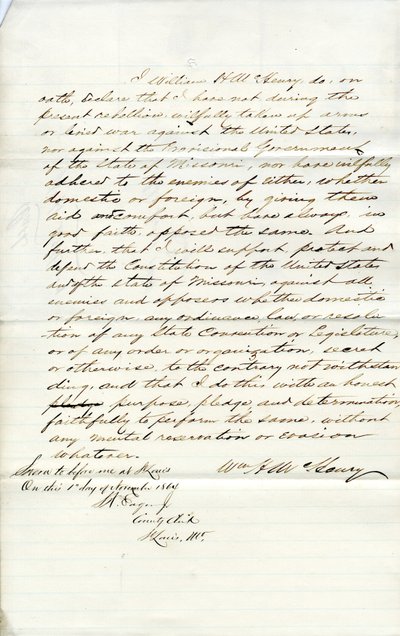 I William H McHenry, do, on
oath, declare that I have not during the
present rebellion, wilfully taken up arms
or levied war against the United States,
nor against the Provisional Government
of the State of Missouri, nor have wilfully
adhered to the enemies of either, whether
domestic or foreign, by giving them
aid and comfort, but have always, in
good faith, opposed the same. And
further, that I will support protect and
defend the Constitution of the United States
and of the State of Missouri, against all
enemies and opposers whether domestic
or foreign any ordinance, law or resolu
tion of any State Convention or Legislature,
or of any order or organization, secret
or otherwise, to the contrary not withstan
ding; and that I do this, with an honest
pledge purpose, pledge and determination
faithfully to perform the same, without
any mental reservation or evasion
whatever.
Wm H McHenry
Sworn to before me at St Louis
On this 1st day of November 1864
County Clerk
St Louis, Mo,